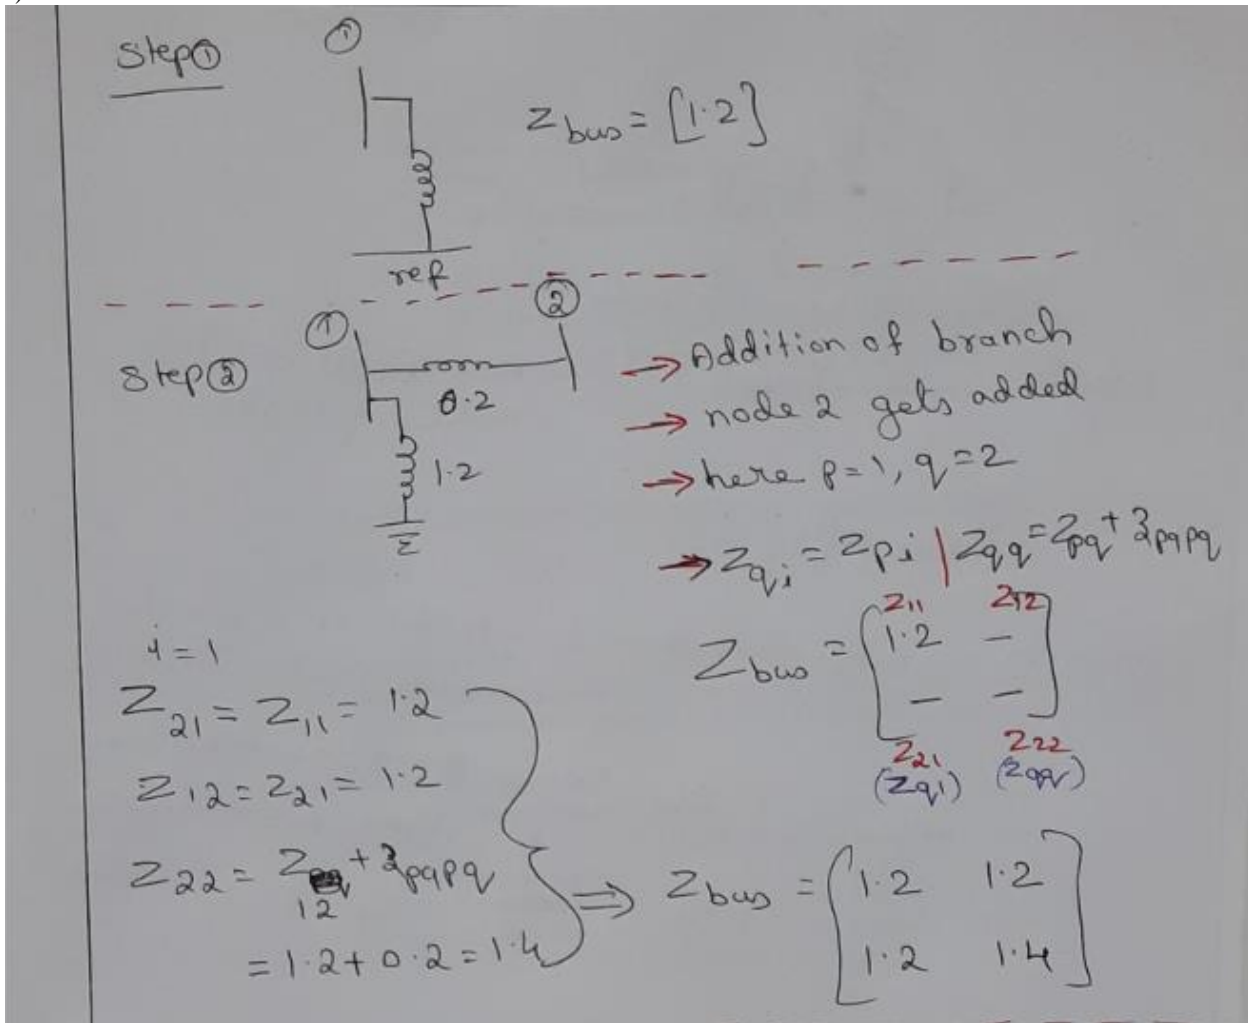 Step①
①
Z bus = [1.2]
ref
①
②
Step②
0.2
1.2
→ Addition of branch
→ node 2 gets added
→ here p=1, q=2
→ Zqi = Zpi | Zqq = Zpq + zpqpq
Z11 Z12
Z bus = [1.2 —
— —]
Z21 Z22
(Zq1) (Zqq)
i = 1
Z21 = Z11 = 1.2
Z12 = Z21 = 1.2
Z22 = Z12 + zpqpq
= 1.2 + 0.2 = 1.4
⇒ Z bus = [1.2 1.2
1.2 1.4]